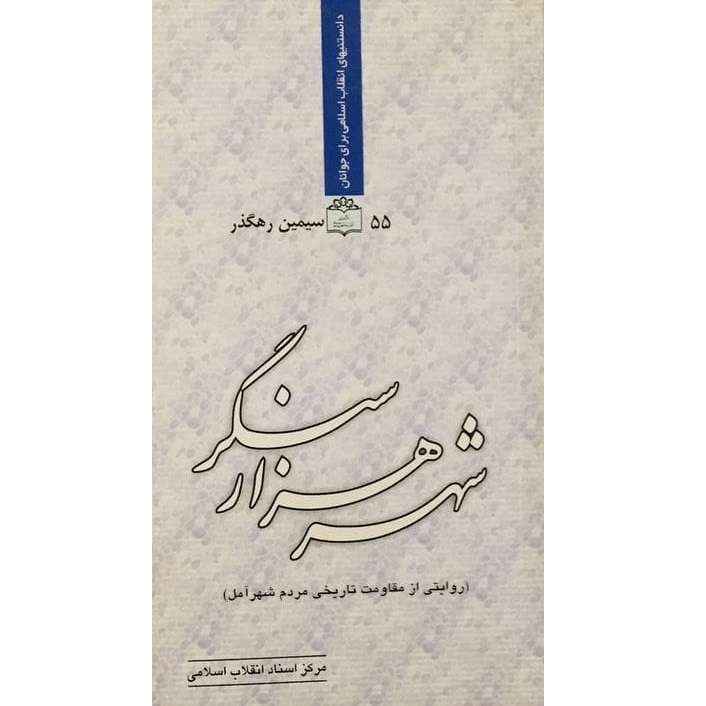 دانستنیهای انقلاب اسلامی برای جوانان
۵۵ سیمین رهگذر
شهر هزار سنگر
(روایتی از مقاومت تاریخی مردم شهر آمل)
مرکز اسناد انقلاب اسلامی